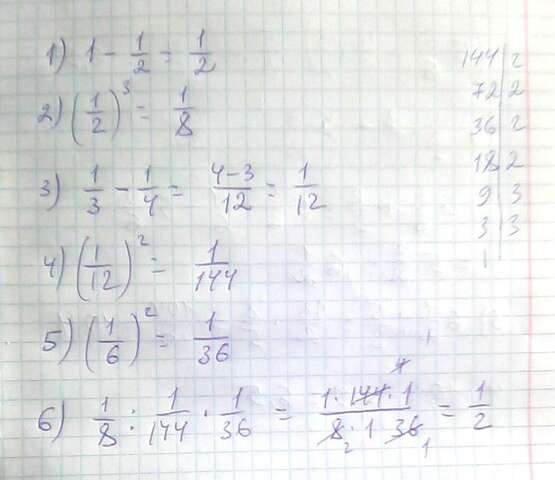 1) 1 - 1/2 = 1/2
2) (1/2)^3 = 1/8
3) 1/3 - 1/4 = (4-3)/12 = 1/12
4) (1/12)^2 = 1/144
5) (1/6)^2 = 1/36
6) 1/8 : 1/144 · 1/36 = (1 · 144 · 1)/(8 · 1 36) = 1/2
4
2 1
144 | 2
72 | 2
36 | 2
18 | 2
9 | 3
3 | 3
1 |